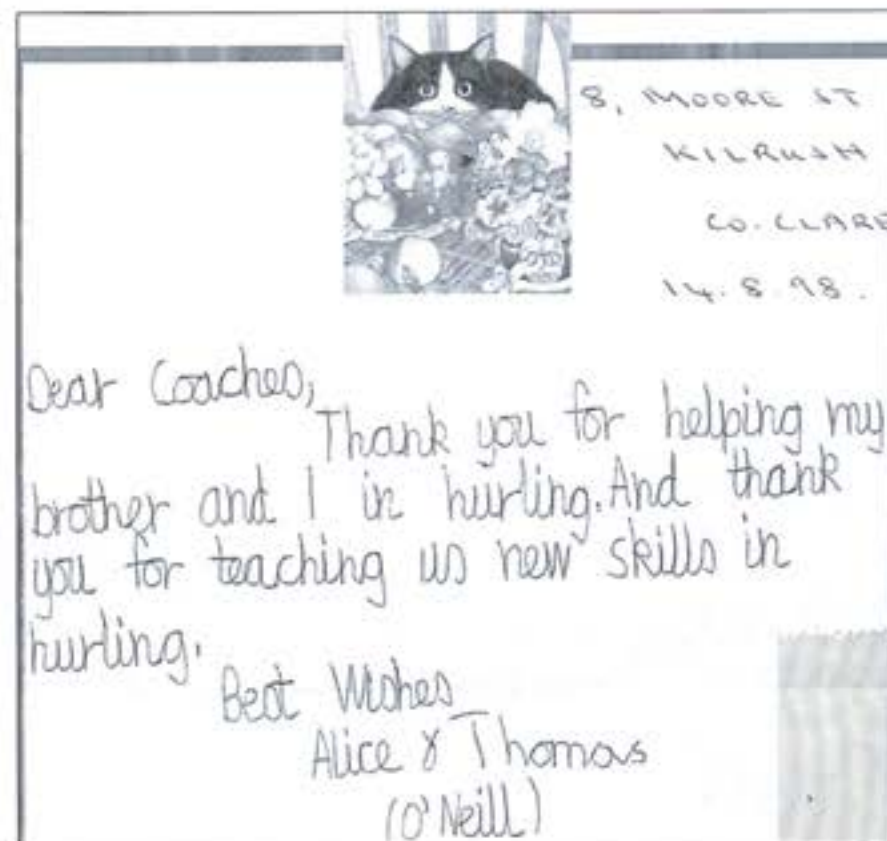 8, MOORE ST
KILRUSH
CO. CLARE
14.8.98.
Dear Coaches,
Thank you for helping my
brother and I in hurling. And thank
you for teaching us new skills in
hurling.
Best Wishes
Alice & Thomas
(O'Neill)